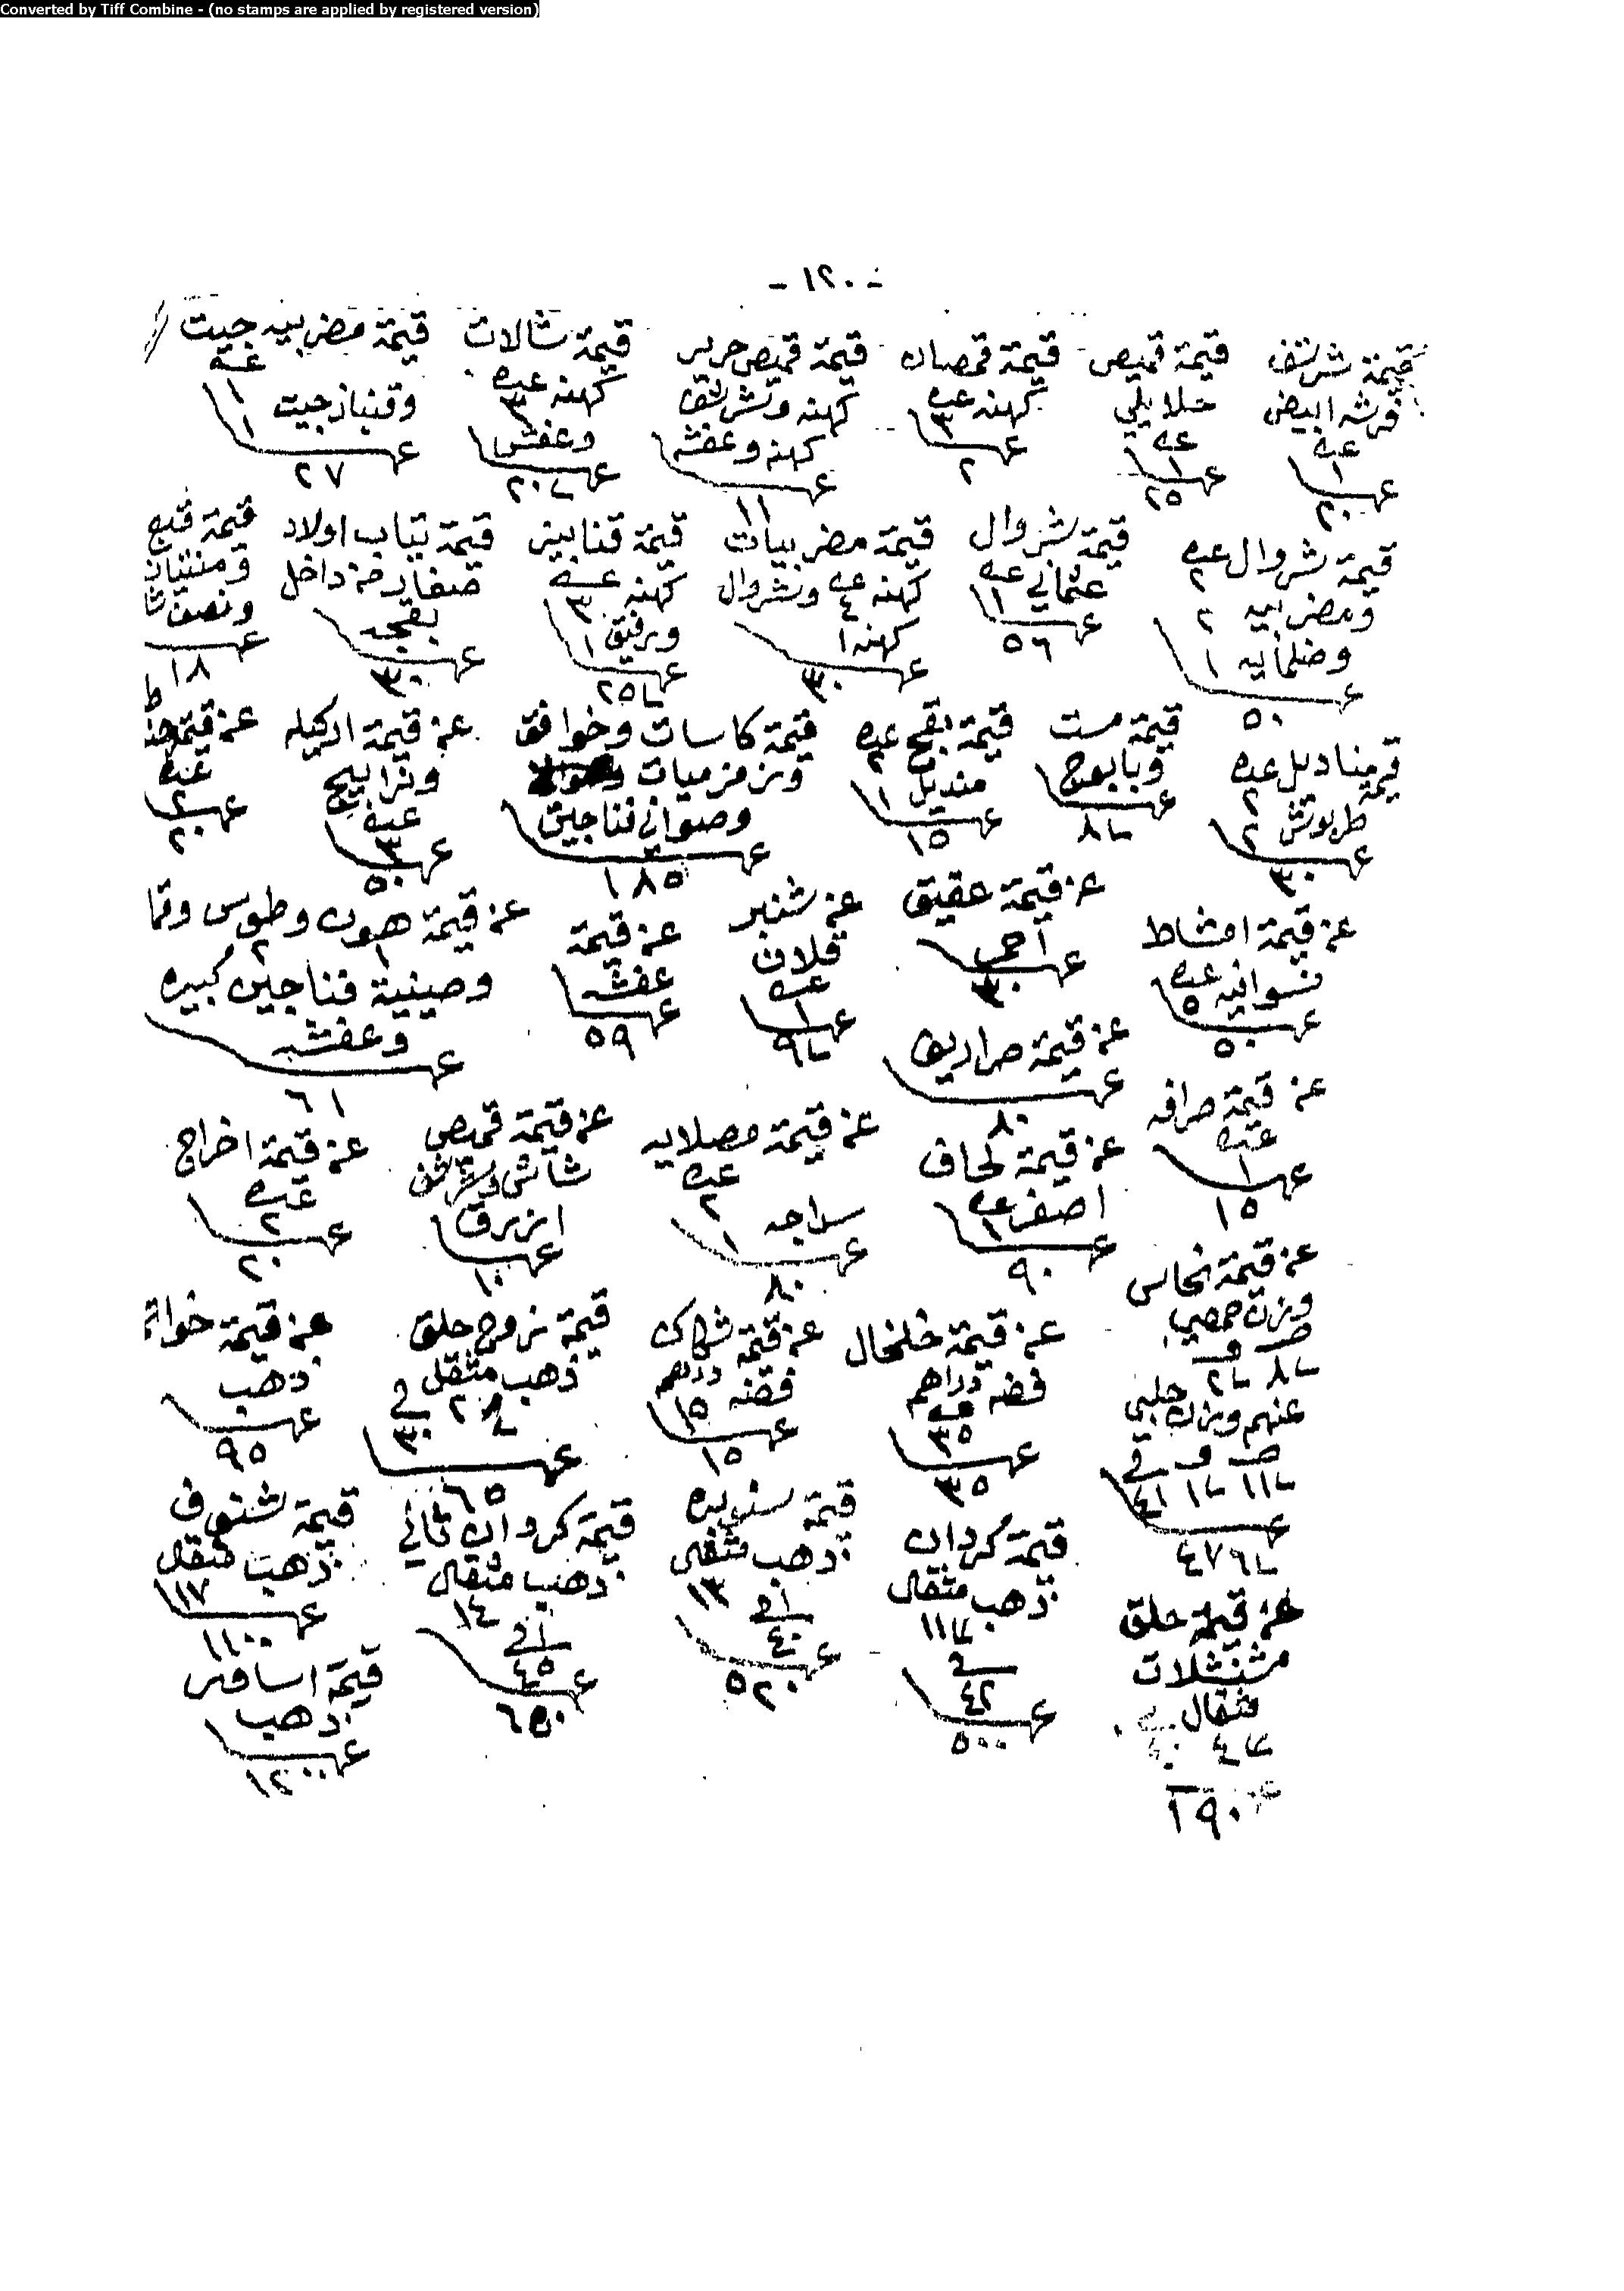 Converted by Tiff Combine - (no stamps are applied by registered version)
- ١٢٠ -
قيمة شرشف فرشه ابيض عدد ١ ٢٠
قيمة قميص ملايلي عدد ١ ٢٥
قيمة قمصان كهنه عدد ٣ ٢
قيمة قميص حرير كهنه وشرشف كهنه وعفشه ١١
قيمة شالات كهنه عدد ٣ وعفش ٢٠
قيمة مضربيه جيت عدد ١ وقنباز جيت ١ ٢٧
قيمة شروال عدد ٢ ومضربيه ٢ وضلمايه ١ ٥٠
قيمة شروال عثمالي عدد ١ ٥٦
قيمة مضربيات كهنه عدد ٤ وشروال كهنه ١ ٣٠
قيمة قنابيز كهنه عدد ٣ وبرفيق ١ ٢٥
قيمة تياب اولاد صغار من داخل بقجه ٣٠
قيمة قبع ونصف ١٨
قيمة مناديل عدد ٢ طربوش ٢ ٣٠
قيمة مست وبابوج ٨
قيمة بقج عدد ٢ منديل ١ ١٥
قيمة كاسات وخوافق وزمزميات وصواني فناجين ١٨٥
عن قيمة اركيله ونرابيج عدد ٣ ٥٠
عن قيمة عدد ٢ ٢٠
عن قيمة امشاط نسوانيه عدد ٥ ٥٠
عن قيمة عقيق احمر ٣٠
عن شنبر قلان عدد ١ ٩
عن قيمة عفشه ٥٩
عن قيمة هون وطوس وصينية فناجين كبيره وعفشه ٦١
عن قيمة صرافه عدد ١ ١٥
عن قيمة صراريف ٨٠
عن قيمة لحاف اصفر عدد ١ ٩٠
عن قيمة مصلايه عدد ٢ سراجه ١ ٨٠
عن قيمة قميص شاش وشرشف ازرق ١٠
عن قيمة اخراج عدد ٢ ٢٠
عن قيمة نحاس وزن حمصي ٨ ٢ عنهم وزن حلبي ١١ ١ ٤١ ٤٧٦
عن قيمة خلخال فضه دراهم ٣٥ ٣٥
عن قيمة شهاك فضه دراهم ١٥ ١٥
قيمة زوج حلق ذهب مثقل ٢ في ٣٠ ٦٥
عن قيمة خواتم ذهب ٩٥
عن قيمة حلق مشنشلات مثقال ٤ ١٩٠
قيمة كردان ذهب مثقال ١١ في ٤٢ ٥٠٠
قيمة سنويره ذهب مثقال ١٣ في ٤٠ ٥٢٠
قيمة كردان ثاني ذهب مثقال ١٤ في ٤٥ ٦٥٠
قيمة شنوف ذهب مثقال ١١٧ ١١٠٠
قيمة اساور ذهب ١٢٠٠